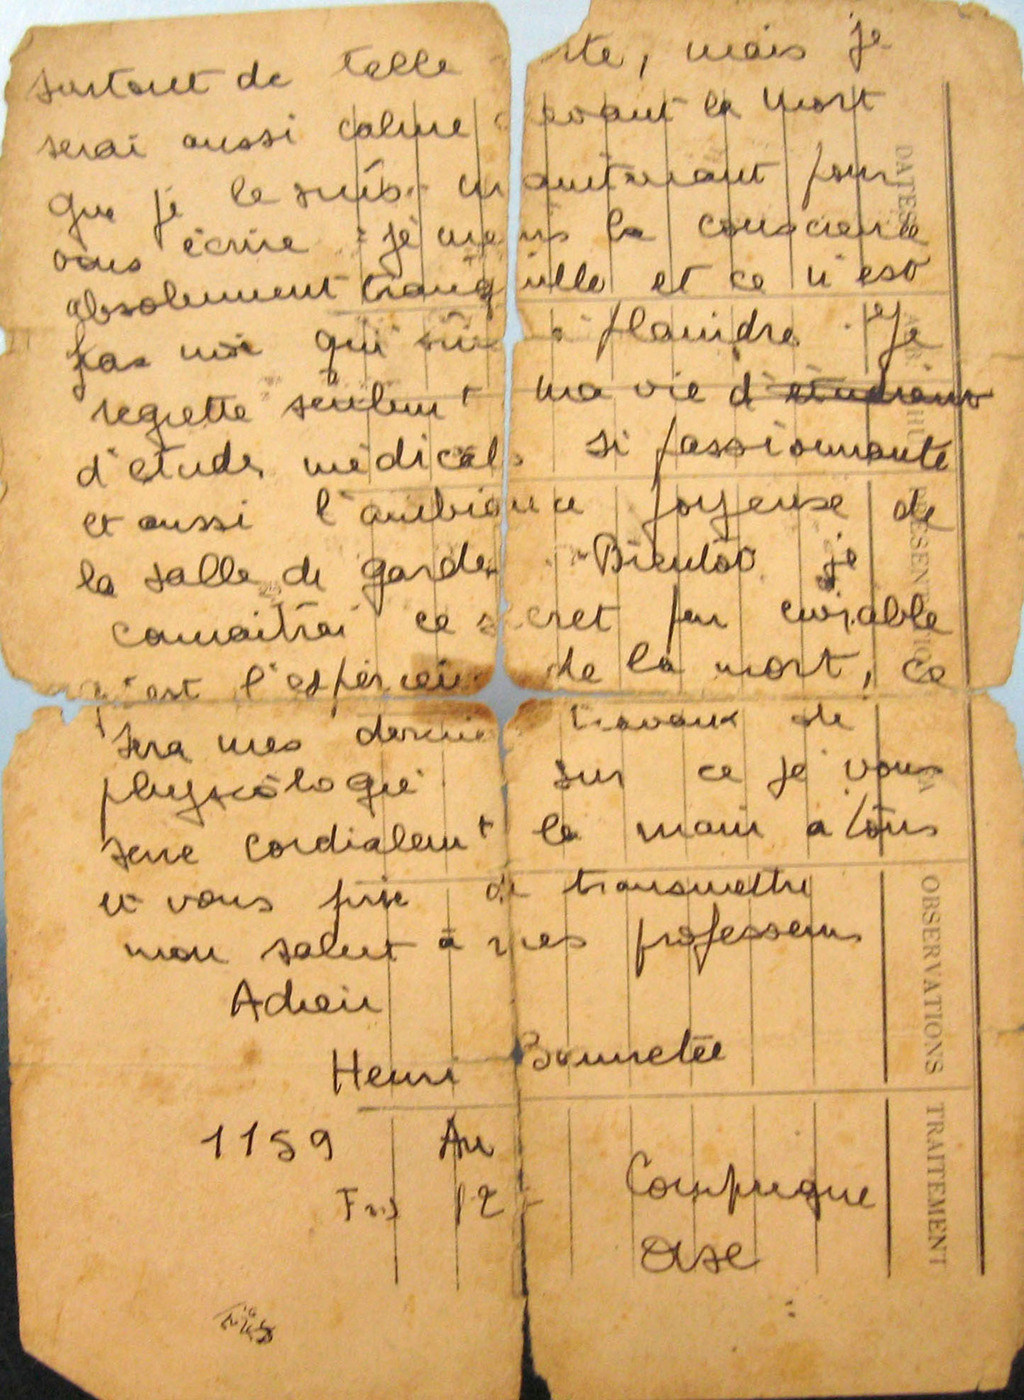 surtout de telle rte, mais je
serai aussi calme devant la mort
que je le suis maintenant pour
vous écrire : je meurs la conscience
absolument tranquille et ce n'est
pas moi qui suis à plaindre. Je
regrette seulemt ma vie d'étudiant
d'études médicales si passionnante
et aussi l'ambiance joyeuse de
la salle de garde. Bientôt je
connaitrai ce secret peu enviable
qu'est l'expérience de la mort, ce
sera mes derniers travaux de
physiologie. sur ce je vous
serre cordialemt la main a tous
et vous prie de transmettre
mon salut à mes professeurs
Adieu
Henri Bonnetée
1159 Compiègne
12 Oise
DATES
OBSERVATIONS
TRAITEMENT